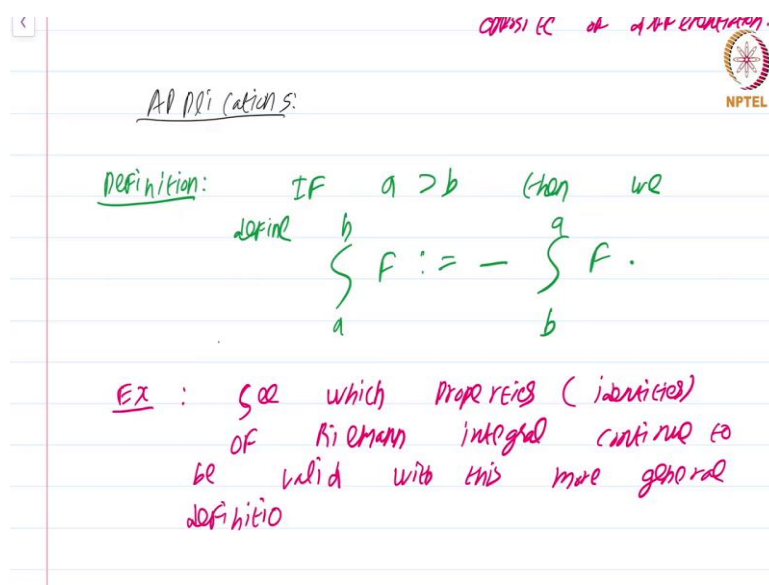 opposite of differentiation.
NPTEL
Applications:
Definition: IF a > b then we
define
∫_a^b F := - ∫_b^a F .
Ex : See which Properties ( identities)
OF Riemann integral continue to
be valid with this more general
definitio